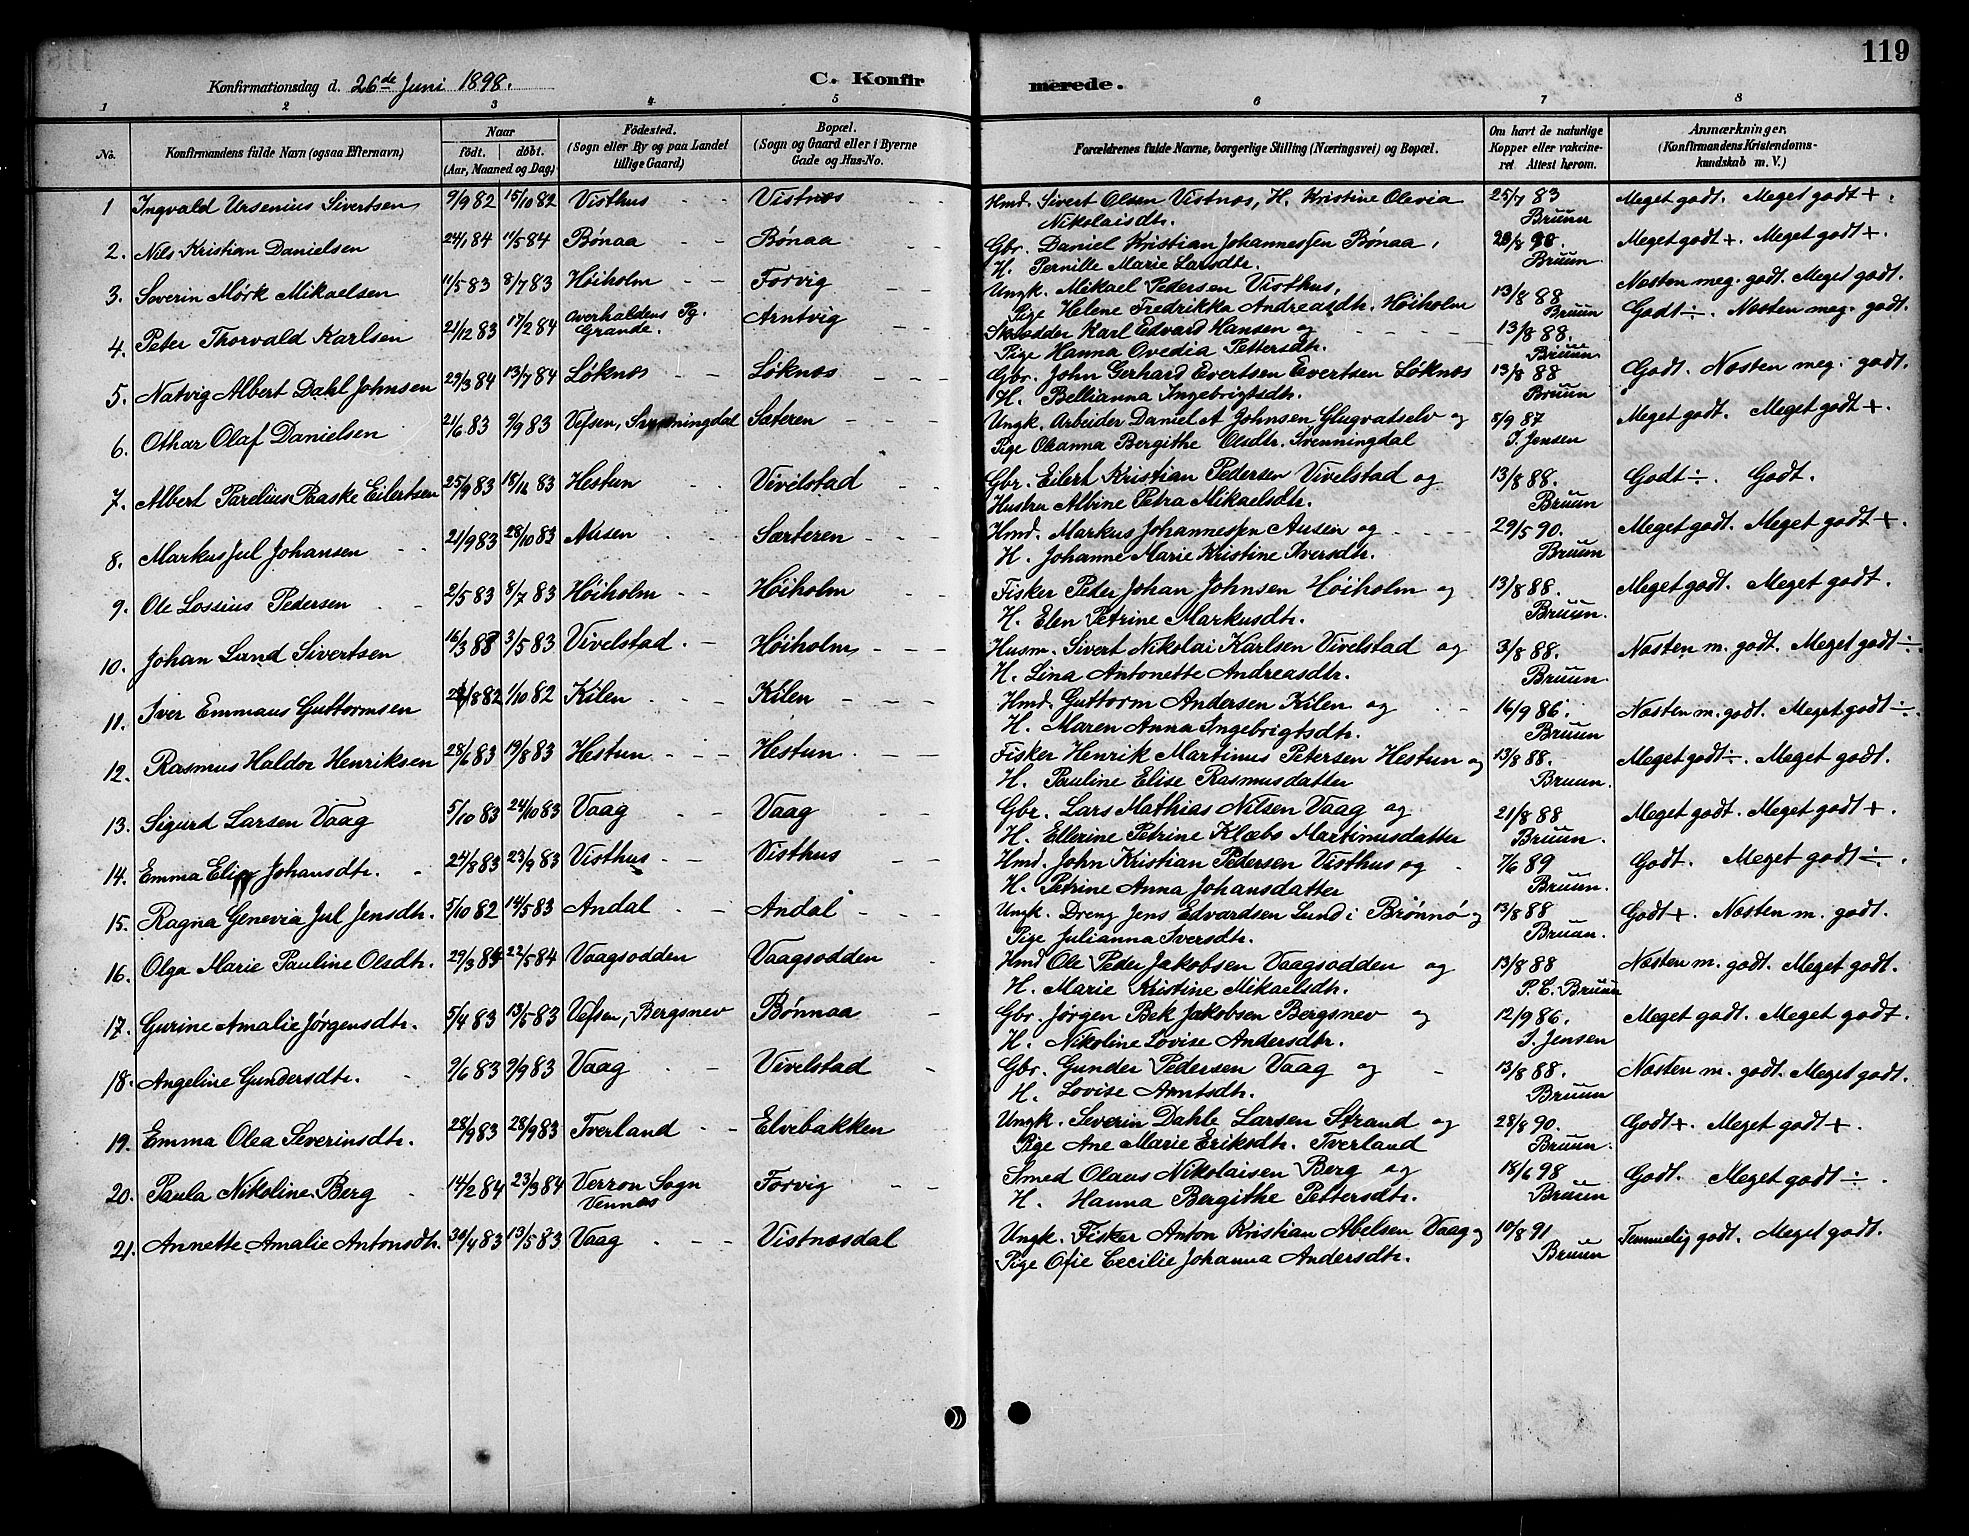 119
Konfirmationsdag d. 26de Juni 1898. C. Konfirmerede.
1 2 3 4 5 6 7 8
No. Konfirmandens fulde Navn (ogsaa Efternavn) Naar født. døbt. (Aar, Maaned og Dag) Fødested. (Sogn eller By og paa Landet tillige Gaard) Bopæl. (Sogn og Gaard eller i Byerne Gade og Hus-No.) Forældrenes fulde Navne, borgerlige Stilling (Næringsvei) og Bopæl. Om havt de naturlige Kopper eller vakcineret. Attest herom. Anmærkninger. (Konfirmandens Kristendomskundskab m. V.)
1 Ingvald Ursenius Sivertsen 9/9 82 15/10 82 Visthus Vistnæs Hmd. Sivert Olsen Vistnæs, H. Kristine Olevia 25/7 83 Meget godt. Meget godt +.
Nikolaisdtr. Bruun
2. Nils Kristian Danielsen 24/1 84 11/5 84 Bønaa Bønaa Gbr. Daniel Kristian Johannessen Bønaa, 28/8 90. Meget godt +. Meget godt +.
H. Pernille Marie Larsdtr. Bruun.
3. Severin Mørk Mikaelsen 11/5 83 8/7 83 Høiholm Forvig Ungk. Mikael Pedersen Visthus, 13/8 88 Næsten meg. godt. Meget godt.
Pige Helene Fredrikka Andreasdtr. Høiholm Bruun
4. Peter Thorvald Karlsen 21/12 83 17/2 84 Overhaldens Pg. Grande. Arntvig Skrædder Karl Edvard Hansen og 13/8 88. Godt ÷. Næsten meg. godt.
Pige Hanna Ovedia Pettersdtr. Bruun
5. Natvig Albert Dahl Johnsen 29/3 84 13/7 84 Løknæs Løknæs Gbr. John Gerhard Evertsen Evertsen Løknæs 13/8 88 Godt. Næsten meg. godt.
H. Bellianna Ingebrigtsdtr. Bruun
6. Othar Olaf Danielsen 21/6 83 9/9 83 Vefsen, Svenningdal Sæteren Ungk. Arbeider Daniel A Johnsen Glugvatselv og 8/9 87 Meget godt. Meget godt +.
Pige Oleanna Bergithe Olsdtr. Svenningdal J. Jensen
7. Albert Parelius Baske Eilertsen 25/9 83 18/11 83 Hestun Vivelstad Gbr. Eilert Kristian Pedersen Vivelstad og 13/8 88. Godt ÷. Godt.
Hustru Albine Petra Mikaelsdtr. Bruun
8. Markus Jul Johansen 21/9 83 28/10 83 Ausen Sæteren Hmd. Markus Johannessen Ausen og 29/5 90. Meget godt. Meget godt +.
H. Johanne Marie Kristine Iversdtr. Bruun
9. Ole Lossius Pedersen 2/5 83 8/7 83 Høiholm Høiholm Fisker Peder Johan Johnsen Høiholm og 13/8 88. Meget godt. Meget godt.
H. Elen Petrine Markusdtr. Bruun.
10. Johan Lund Sivertsen 16/3 83 3/5 83 Vivelstad. Høiholm Husm. Sivert Nikolai Karlsen Vivelstad og 3/8 88. Næsten m. godt. Meget godt ÷.
H. Lina Antonette Andreasdtr. Bruun.
11. Iver Emmaus Guttormsen /8 82 1/10 82 Kilen Kilen Hmd. Guttorm Andersen Kilen og 16/9 86. Næsten m. godt. Meget godt ÷.
H. Maren Anna Ingebrigtsdtr. Bruun
12. Rasmus Haldor Henriksen 28/6 83 19/8 83 Hestun Hestun Fisker Henrik Martinus Petersen Hestun og 13/8 88. Meget godt ÷. Meget godt.
H. Pauline Elise Rasmusdatter Bruun.
13. Sigurd Larsen Vaag 5/10 83 24/10 83 Vaag Vaag Gbr. Lars Mathias Nilsen Vaag og 21/8 88 Meget godt. Meget godt +.
H. Ellerine Petrine Klæbo Martinusdatter Bruun.
14. Emma Elise Johansdtr. 24/8 83 23/9 83 Visthus Visthus Hmd. John Kristian Pedersen Visthus og 7/6 89 Godt. Meget godt ÷.
H. Petrine Anna Johansdatter Bruun.
15. Ragna Genevia Jul Jensdtr. 5/10 82 14/5 83 Andal Andal Ungk. Dreng Jens Edvardsen Lund i Brønnø og 13/8 88 Godt +. Næsten m. godt.
Pige Julianna Iversdtr. Bruun.
16. Olga Marie Pauline Olsdtr. 29/3 84 22/5 84 Vaagsodden Vaagsodden Hmd Ole Peder Jakobsen Vaagsodden og 13/8 88 Næsten m. godt. Meget godt.
H. Marie Kristine Mikaelsdtr. P. C. Bruun
17. Gurine Amalie Jørgensdtr. 5/4 83 13/5 83 Vefsen, Bergsnev Bønnaa Gbr. Jørgen Bek Jakobsen Bergsnev og 12/9 86. Meget godt. Meget godt.
H. Nikoline Lovise Andersdtr. J. Jensen
18. Angeline Gundersdtr. 9/6 83 9/9 83 Vaag Vivelstad Gbr. Gunder Pedersen Vaag og 13/8 88. Næsten m. godt. Meget godt.
H. Lovise Arntsdtr. Bruun
19. Emma Olea Severinsdtr. 28/9 83 28/9 83 Tverland Elvebakken Ungk. Severin Dahle Larsen Strand og 28/8 90. Godt +. Meget godt +.
Pige Ane Marie Eriksdtr. Tverland Bruun.
20. Paula Nikoline Berg 14/2 84 23/3 84 Verran Sogn Vennæs Forvig Smed Olaus Nikolaisen Berg og 18/6 98 Godt. Meget godt ÷.
H. Hanna Bergithe Pettersdtr. Bruun
21. Annette Amalie Antonsdtr. 30/4 83 13/5 83 Vaag Vistnæsdal Ungk. Fisker Anton Kristian Abelsen Vaag og 10/8 91 Temmelig godt. Meget godt.
Pige Ofie Cecilie Johanna Andersdtr. Bruun